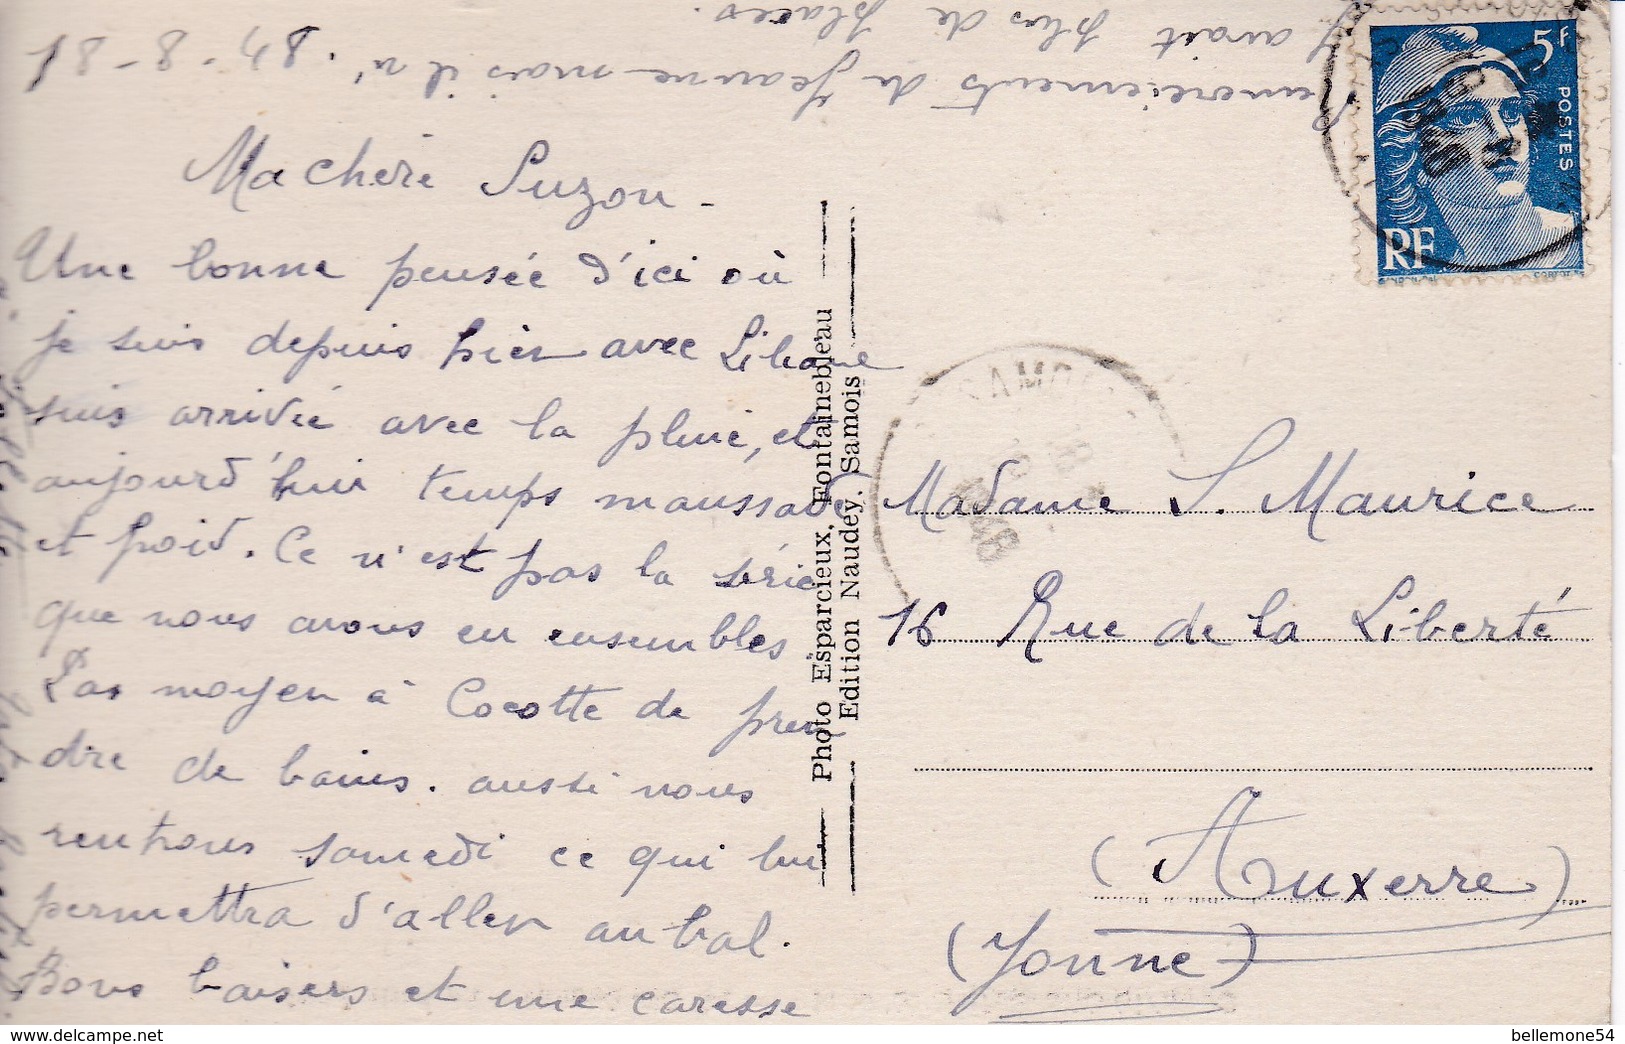 18-8-48.
Ma cherie Suzon -
Une bonne pensée d'ici où
je suis depuis hier avec Liliane
suis arrivée avec la pluie, et
aujourd'hui temps maussade
et froid. Ce n'est pas la série
que nous avons eu ensembles
Pas moyen à Cocotte de pren
dre de bains. aussi nous
rentrons samedi ce qui lui
permettra d'aller au bal.
Bons baisers et une caresse
Remerciements de Jeanne mais il n'
y avait plus de places.
Photo Esparcieux, Fontainebleau
Edition Naudey, Samois
5F
POSTES
RF
SAMOIS
18
8
1948
Madame S. Maurice
16 Rue de la Liberté
(Auxerre)
(Yonne)
bellemone54